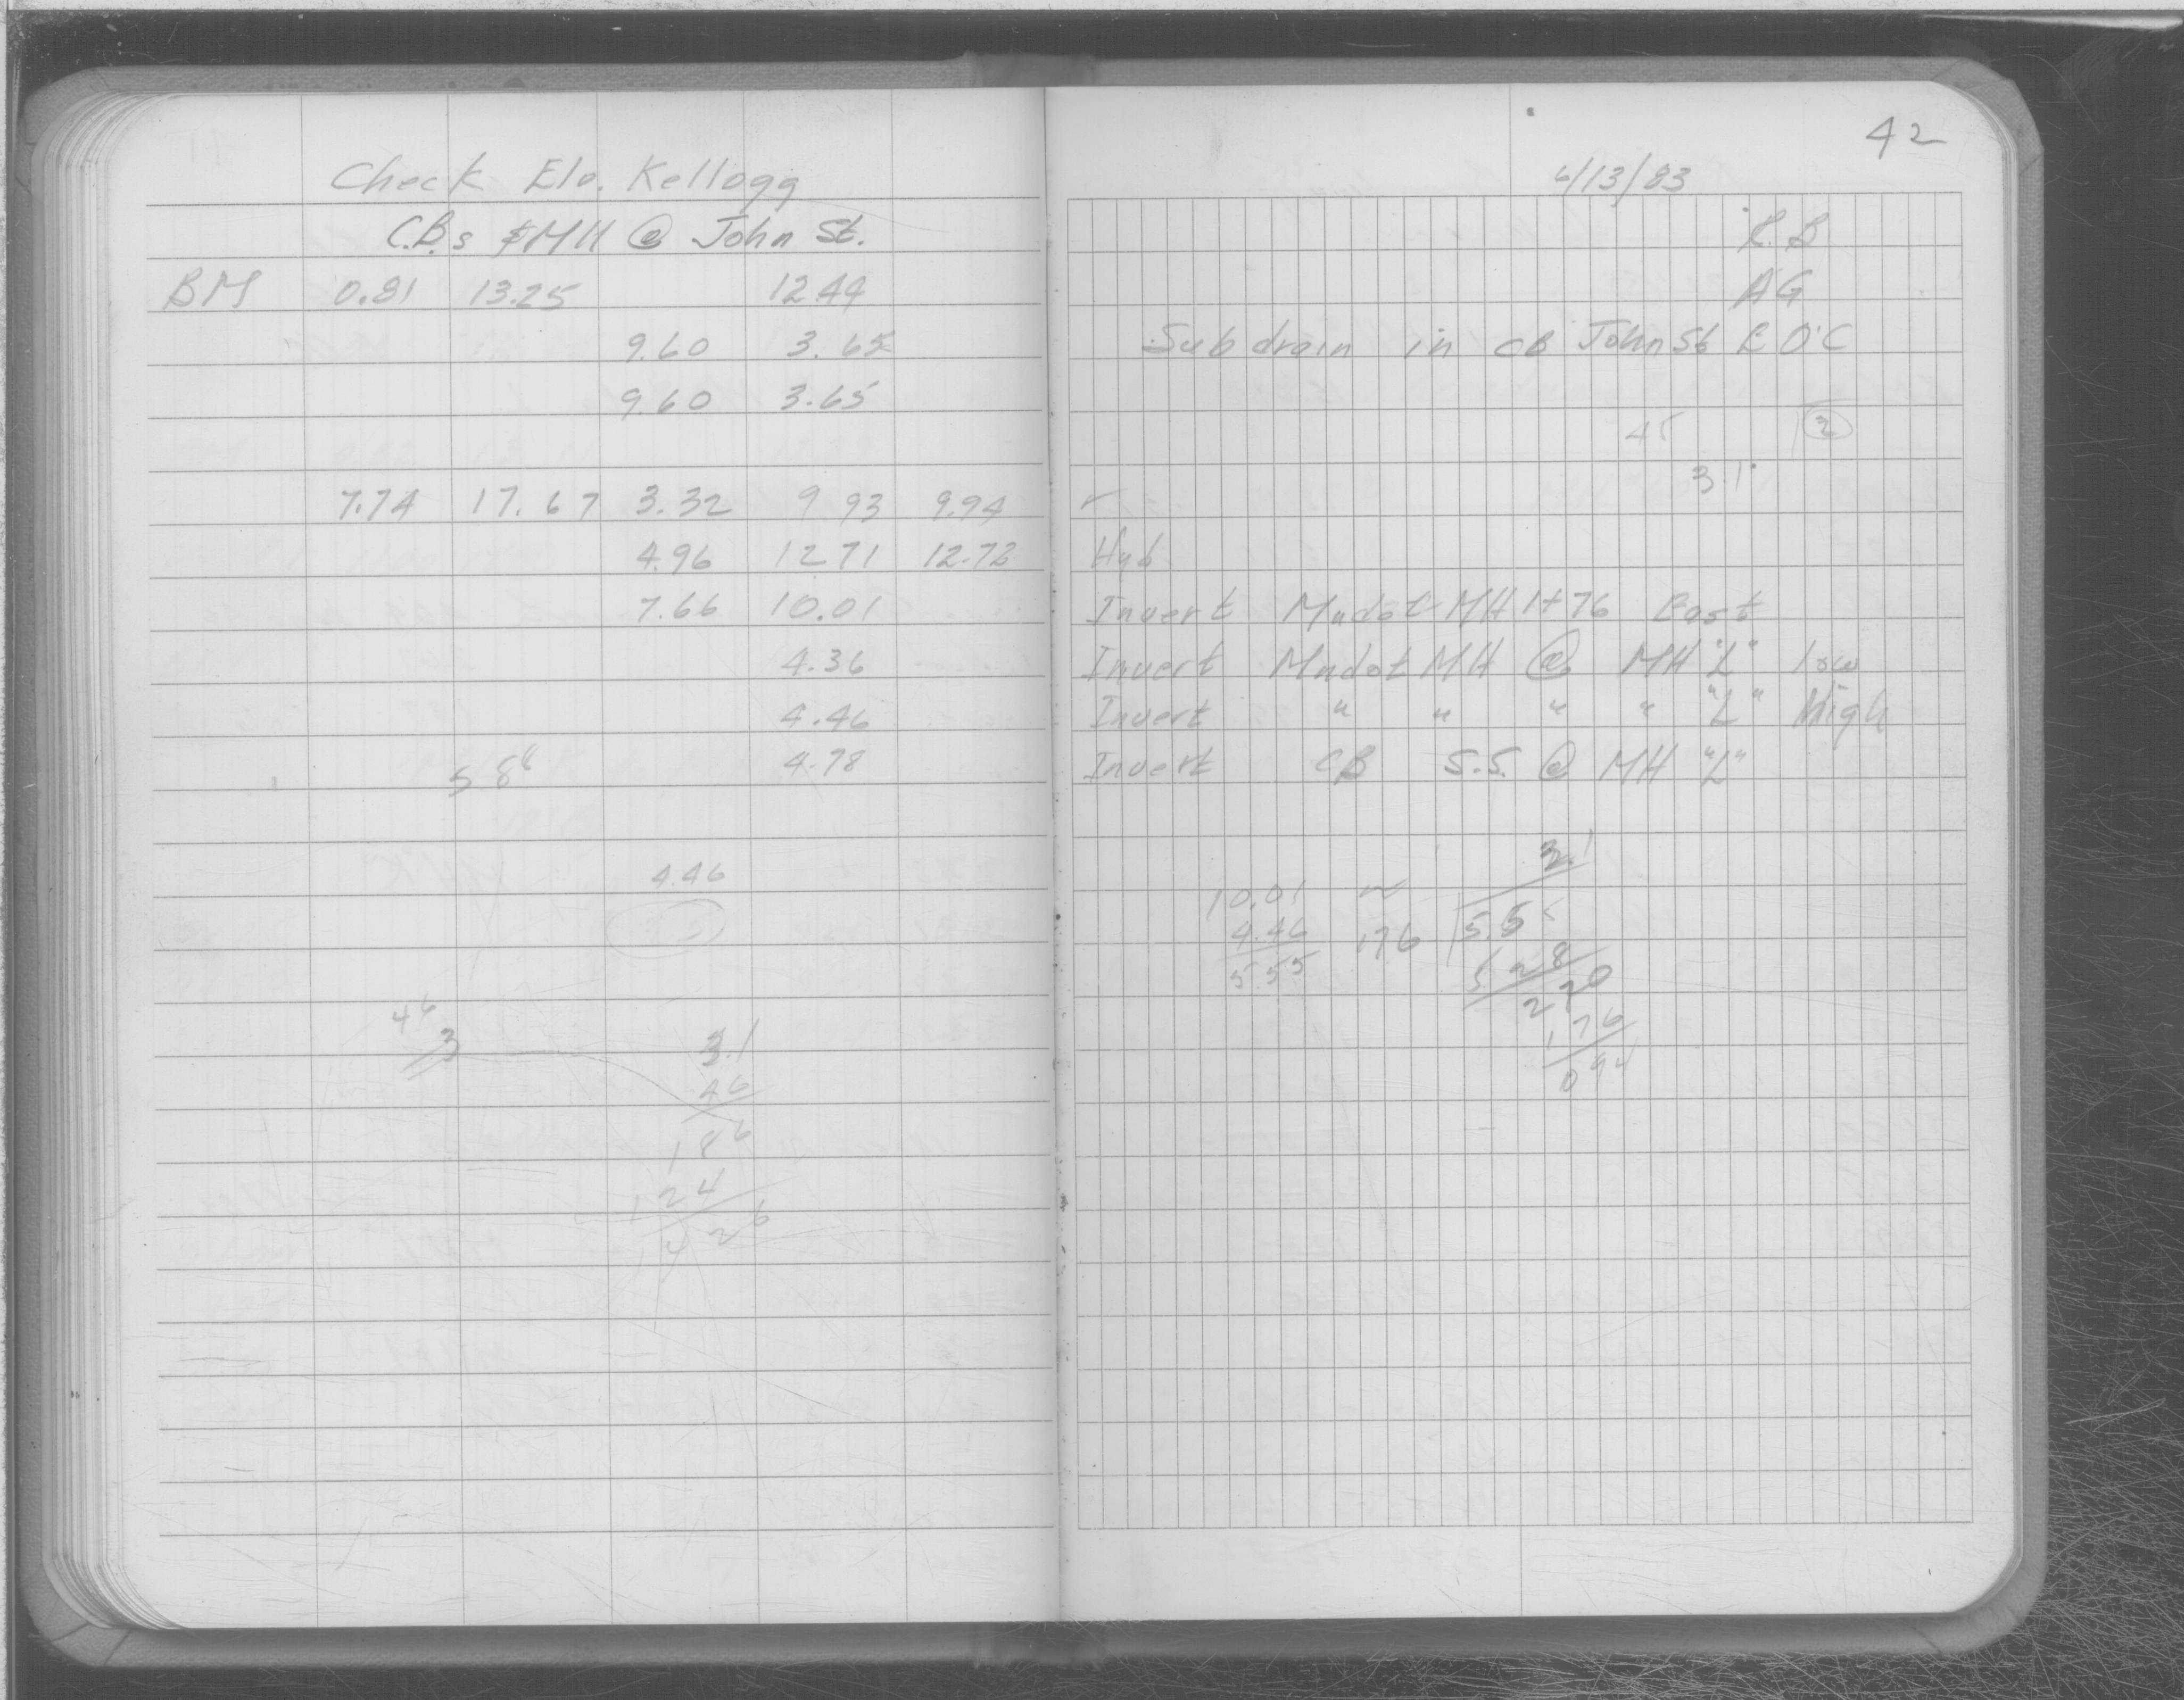 42
Check Elo. Kellogg 6/13/83
C.B.s & MH @ John St. R.B
BM 0.81 13.25 12.44 AG
9.60 3.65 Subdrain in CB John St
9.60 3.65
45 2
3.1
7.74 17.67 3.32 9 93 9.94
4.96 12.71 12.72 Hub
7.66 10.01 Invert Mndot MH 1+76 East
4.36 Invert Mndot MH @ MH "L" low
4.46 Invert " " " " "L" High
4.78 Invert CB S.S. @ MH "L"
5 86
4.46
3.1
10.01
4.46 176 5.55
5.55 5 28
2 20
1 76
0 94
46
3
3.1
46
186
124
1426